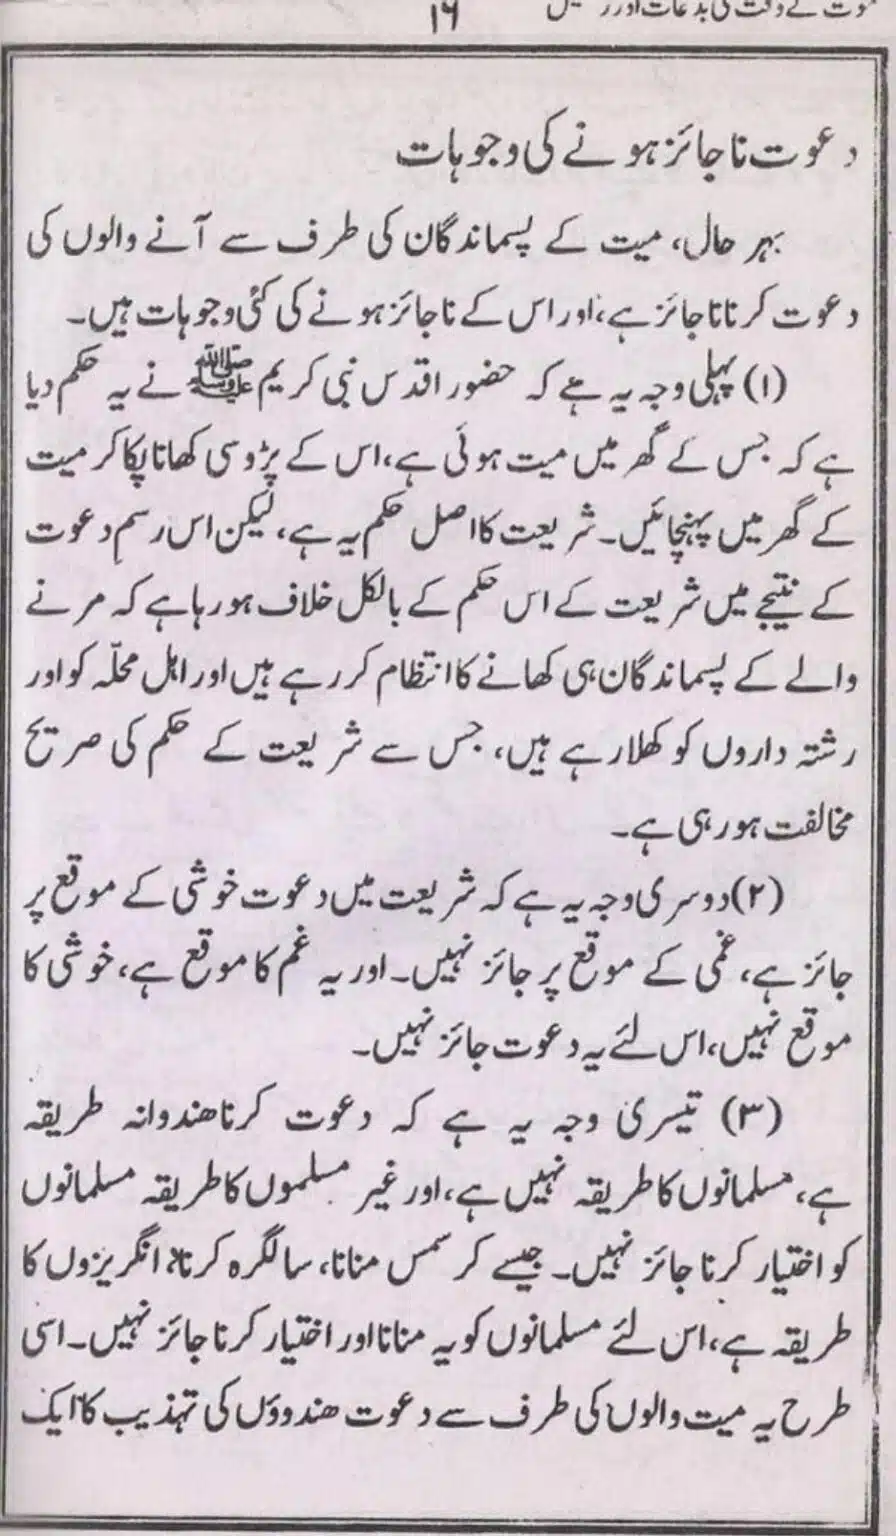 موت کے وقت کی بدعات اور رسمیں
۱۶
دعوت ناجائز ہونے کی وجوہات
بہر حال، میت کے پسماندگان کی طرف سے آنے والوں کی
دعوت کرنا ناجائز ہے، اور اس کے ناجائز ہونے کی کئی وجوہات ہیں۔
(۱) پہلی وجہ یہ ہے کہ حضور اقدس نبی کریم ﷺ نے یہ حکم دیا
ہے کہ جس کے گھر میں میت ہوئی ہے، اس کے پڑوسی کھانا پکا کر میت
کے گھر میں پہنچائیں۔ شریعت کا اصل حکم یہ ہے، لیکن اس رسمِ دعوت
کے نتیجے میں شریعت کے اس حکم کے بالکل خلاف ہو رہا ہے کہ مرنے
والے کے پسماندگان ہی کھانے کا انتظام کر رہے ہیں اور اہل محلّہ کو اور
رشتہ داروں کو کھلا رہے ہیں، جس سے شریعت کے حکم کی صریح
مخالفت ہو رہی ہے۔
(۲) دوسری وجہ یہ ہے کہ شریعت میں دعوت خوشی کے موقع پر
جائز ہے، غمی کے موقع پر جائز نہیں۔ اور یہ غم کا موقع ہے، خوشی کا
موقع نہیں، اس لئے یہ دعوت جائز نہیں۔
(۳) تیسری وجہ یہ ہے کہ دعوت کرنا ھندوانہ طریقہ
ہے، مسلمانوں کا طریقہ نہیں ہے، اور غیر مسلموں کا طریقہ مسلمانوں
کو اختیار کرنا جائز نہیں۔ جیسے کرسمس منانا، سالگرہ کرنا، انگریزوں کا
طریقہ ہے، اس لئے مسلمانوں کو یہ منانا اور اختیار کرنا جائز نہیں۔ اسی
طرح یہ میت والوں کی طرف سے دعوت ھندوؤں کی تہذیب کا ایک